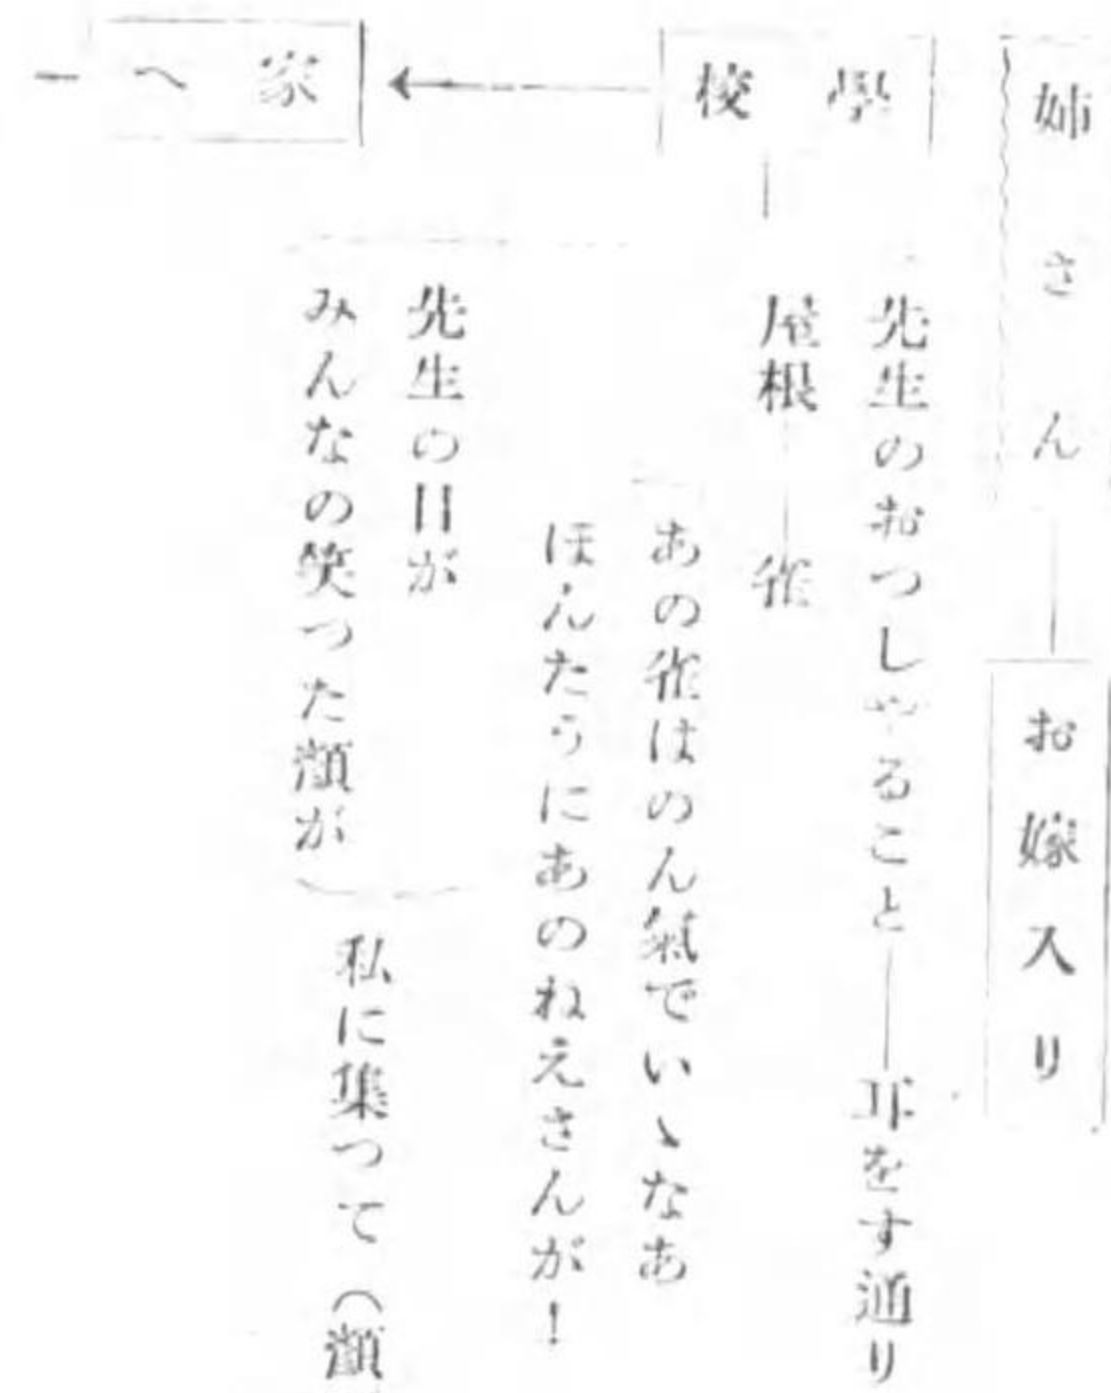 姉さん
お嫁入り
學校
先生のおつしやること
耳をす通り
屋根
雀
あの雀はのん氣でいゝなあ
ほんたうにあのねえさんが！
先生の目が
みんなの笑つた顏が
私に集つて（顏
家へ